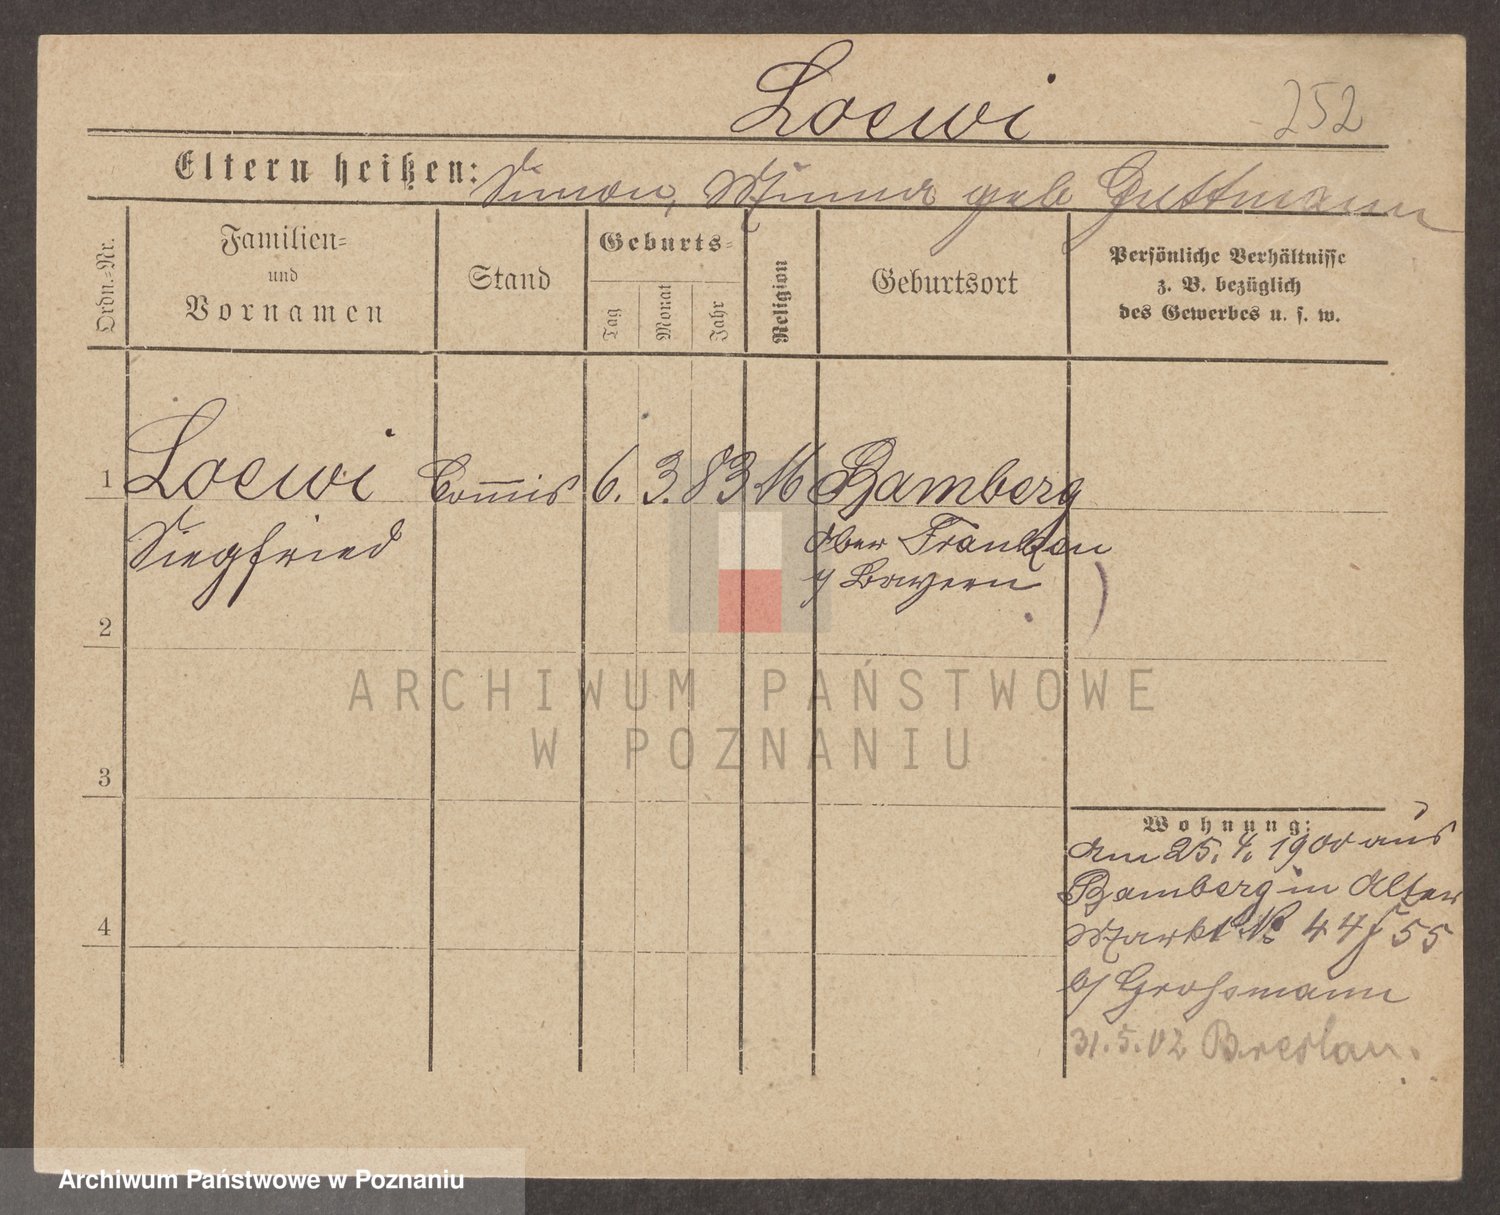 Loewi
252
Eltern heißen: Simon, Minna geb Guttmann
Ordn.-Nr.
Familien-
und
Vornamen
Stand
Geburts-
Tag
Monat
Jahr
Religion
Geburtsort
Persönliche Verhältnisse
z. B. bezüglich
des Gewerbes u. s. w.
1 Loewi Commis 6. 3. 83 Bamberg
Siegfried Ober Franken
Bayern
2
3
4
Wohnung:
Am 25. 4. 1900 aus
Bamberg in Alter
Markt No 44 55
b/ Großmann
31.5.02 Breslau.
ARCHIWUM PAŃSTWOWE
W POZNANIU
Archiwum Państwowe w Poznaniu